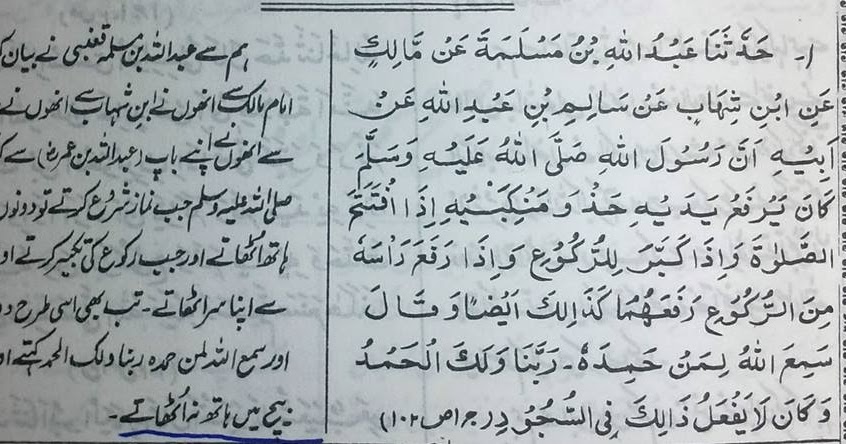 ۱۔ حَدَّثَنَا عَبْدُ اللهِ بْنُ مَسْلَمَةَ عَنْ مَّالِكٍ
عَنِ ابْنِ شِهَابٍ عَنْ سَالِمِ بْنِ عَبْدِ اللهِ عَنْ
اَبِيْهِ اَنَّ رَسُوْلَ اللهِ صَلَّى اللهُ عَلَيْهِ وَسَلَّمَ
كَانَ يَرْفَعُ يَدَيْهِ حَذْوَ مَنْكِبَيْهِ اِذَا افْتَتَحَ
الصَّلٰوةَ وَاِذَا كَبَّرَ لِلرُّكُوْعِ وَاِذَا رَفَعَ رَاْسَهٗ
مِنَ الرُّكُوْعِ رَفَعَهُمَا كَذَالِكَ اَيْضًا وَقَالَ
سَمِعَ اللهُ لِمَنْ حَمِدَهٗ۔ رَبَّنَا وَلَكَ الْحَمْدُ
وَكَانَ لَا يَفْعَلُ ذَالِكَ فِى السُّجُوْدِ (ج۱ ص۱۰۲)
ہم سے عبداللہ بن مسلمہ قعنبی نے بیان
امام مالک سے انھوں نے ابن شہاب سے انھوں نے
سے انھوں نے اپنے باپ (عبداللہ بن عمرؓ) سے
صلی اللہ علیہ وسلم جب نماز شروع کرتے تو دونوں
ہاتھ اُٹھاتے اور جب رکوع کی تکبیر کرتے
سے اپنا سر اٹھاتے۔ تب بھی اسی طرح
اور سمع اللہ لمن حمدہ ربنا ولک الحمد کہتے
بیچ میں ہاتھ نہ اُٹھاتے۔